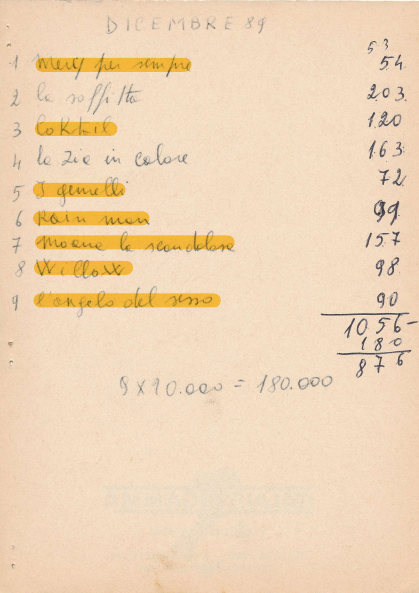 DICEMBRE 89
53
1 Mery per sempre 54
2 la soffitta 203
3 Coktail 120
4 la zia in calore 163
5 I gemelli 72
6 Rain man 99
7 Moana la scandalosa 157
8 Willow 98
9 l'angelo del sesso 90
1056-
180
876
9 x 20.000 = 180.000